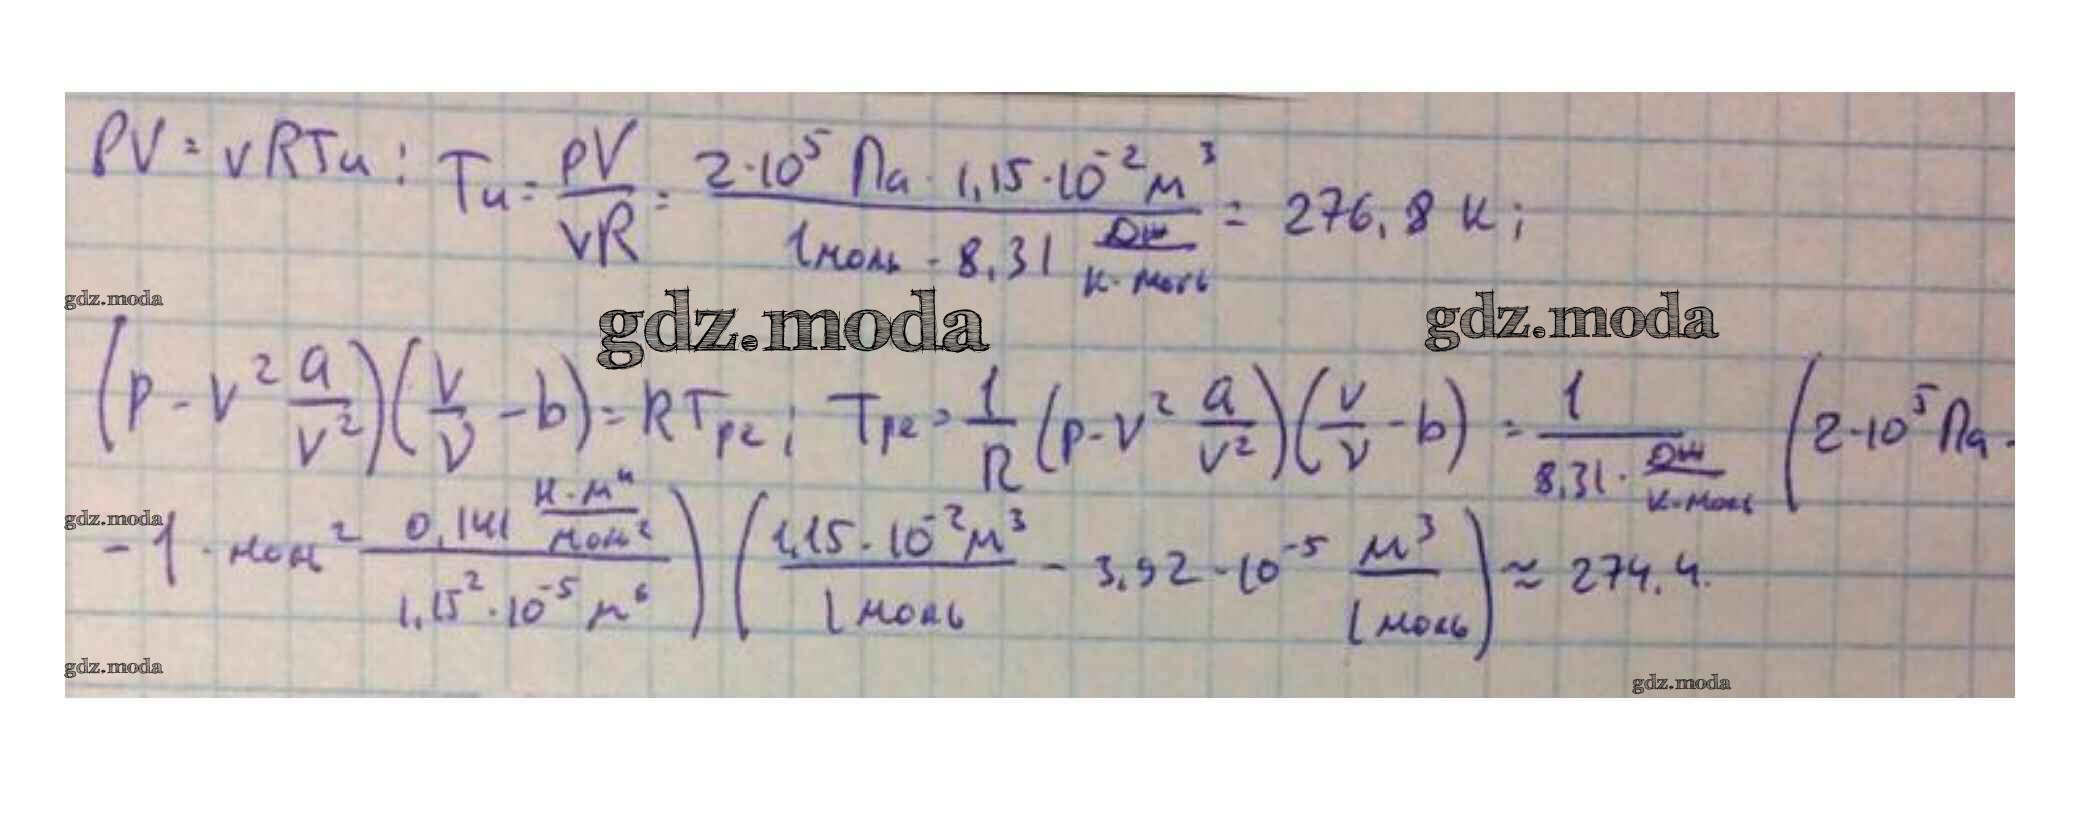 PV = νRTи; Tи = pV/νR = 2·10⁵ Па · 1,15·10⁻² м³ / 1 моль · 8,31 Дж/К·моль = 276,8 К;
gdz.moda gdz.moda gdz.moda
(p - ν² a/V²)(V/ν - b) = RTрг; Tрг = 1/R (p - ν² a/V²)(V/ν - b) = 1/8,31· Дж/К·моль (2·10⁵ Па -
gdz.moda
- 1 · моль² 0,141 Н·м⁴/моль² / 1,15²·10⁻⁵ м⁶) (1,15·10⁻² м³ / 1 моль - 3,92·10⁻⁵ м³ / 1 моль) ≈ 274,4.
gdz.moda gdz.moda